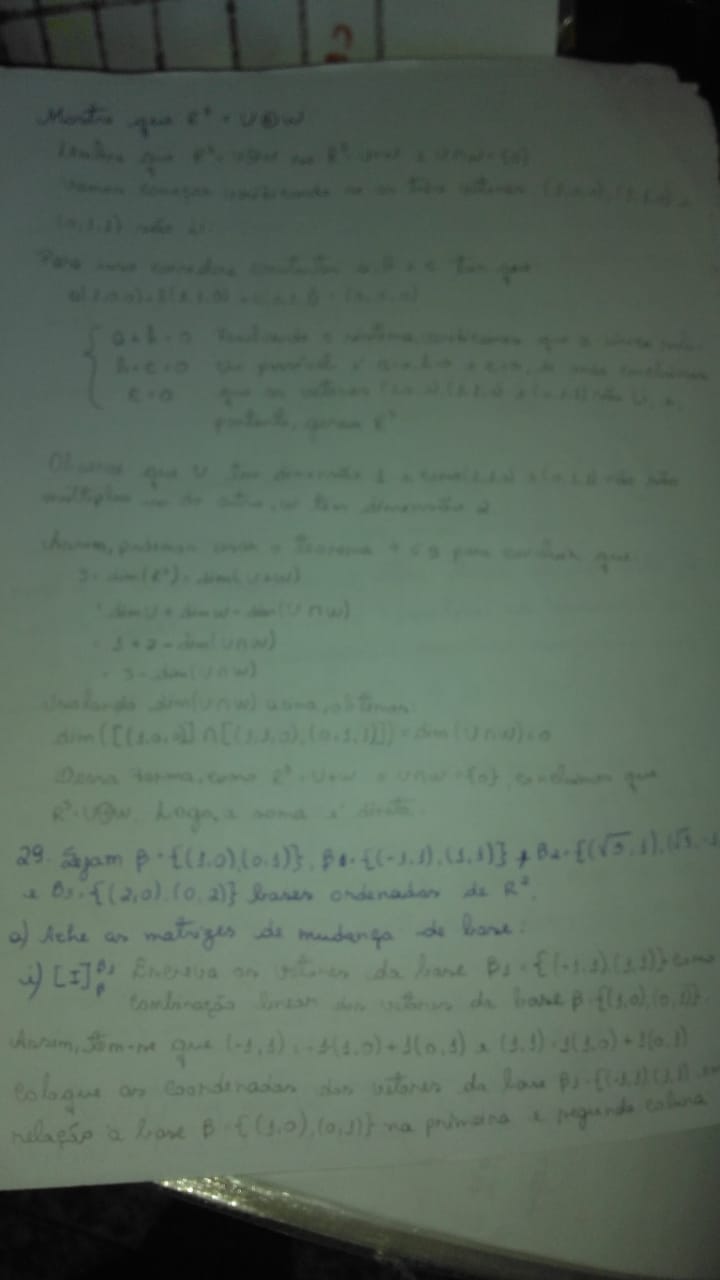 Mostre que R³ = U⊕W
Lembre que R³ = U⊕W se R³ = U+W e U∩W = {0}
Vamos começar verificando se os três vetores (1,0,0), (1,1,0) e
(0,1,1) são LI.
Para isso considere constantes a, b e c tais que
a(1,0,0)+b(1,1,0)+c(0,1,1) = (0,0,0)
a+b=0 Resolvendo o sistema, verificamos que a única
b+c=0 possível é a=0, b=0 e c=0, concluímos
c=0 que os vetores (1,0,0), (1,1,0) e (0,1,1) são LI, e,
portanto, geram R³
Observe que U tem dimensão 1 e como (1,1,0) e (0,1,1) não são
múltiplos um do outro, W tem dimensão 2
Assim, podemos usar o teorema para concluir que
3 = dim(R³) = dim(U+W)
= dim U + dim W - dim(U∩W)
= 1+2-dim(U∩W)
= 3-dim(U∩W)
Isolando dim(U∩W) acima, obtemos:
dim([(1,0,0)] ∩ [(1,1,0), (0,1,1)]) = dim(U∩W) = 0
Dessa forma, como R³ = U+W e U∩W = {0}, concluímos que
R³ = U⊕W. Logo, a soma é direta.
29. Sejam β = {(1,0), (0,1)}, β1 = {(-1,1), (1,1)}, β2 = {(√3, 1), (√3, -1
e β3 = {(2,0), (0,2)} bases ordenadas de R².
a) Ache as matrizes de mudança de base:
i) [I]β1β Escreva os vetores da base β1 = {(-1,1), (1,1)} como
combinação linear dos vetores da base β = {(1,0), (0,1)}.
Assim, tem-se que (-1,1) = -1(1,0) + 1(0,1) e (1,1) = 1(1,0) + 1(0,1)
Coloque as coordenadas dos vetores da base β1 = {(-1,1), (1,1)} em
relação à base β = {(1,0), (0,1)} na primeira e segunda coluna